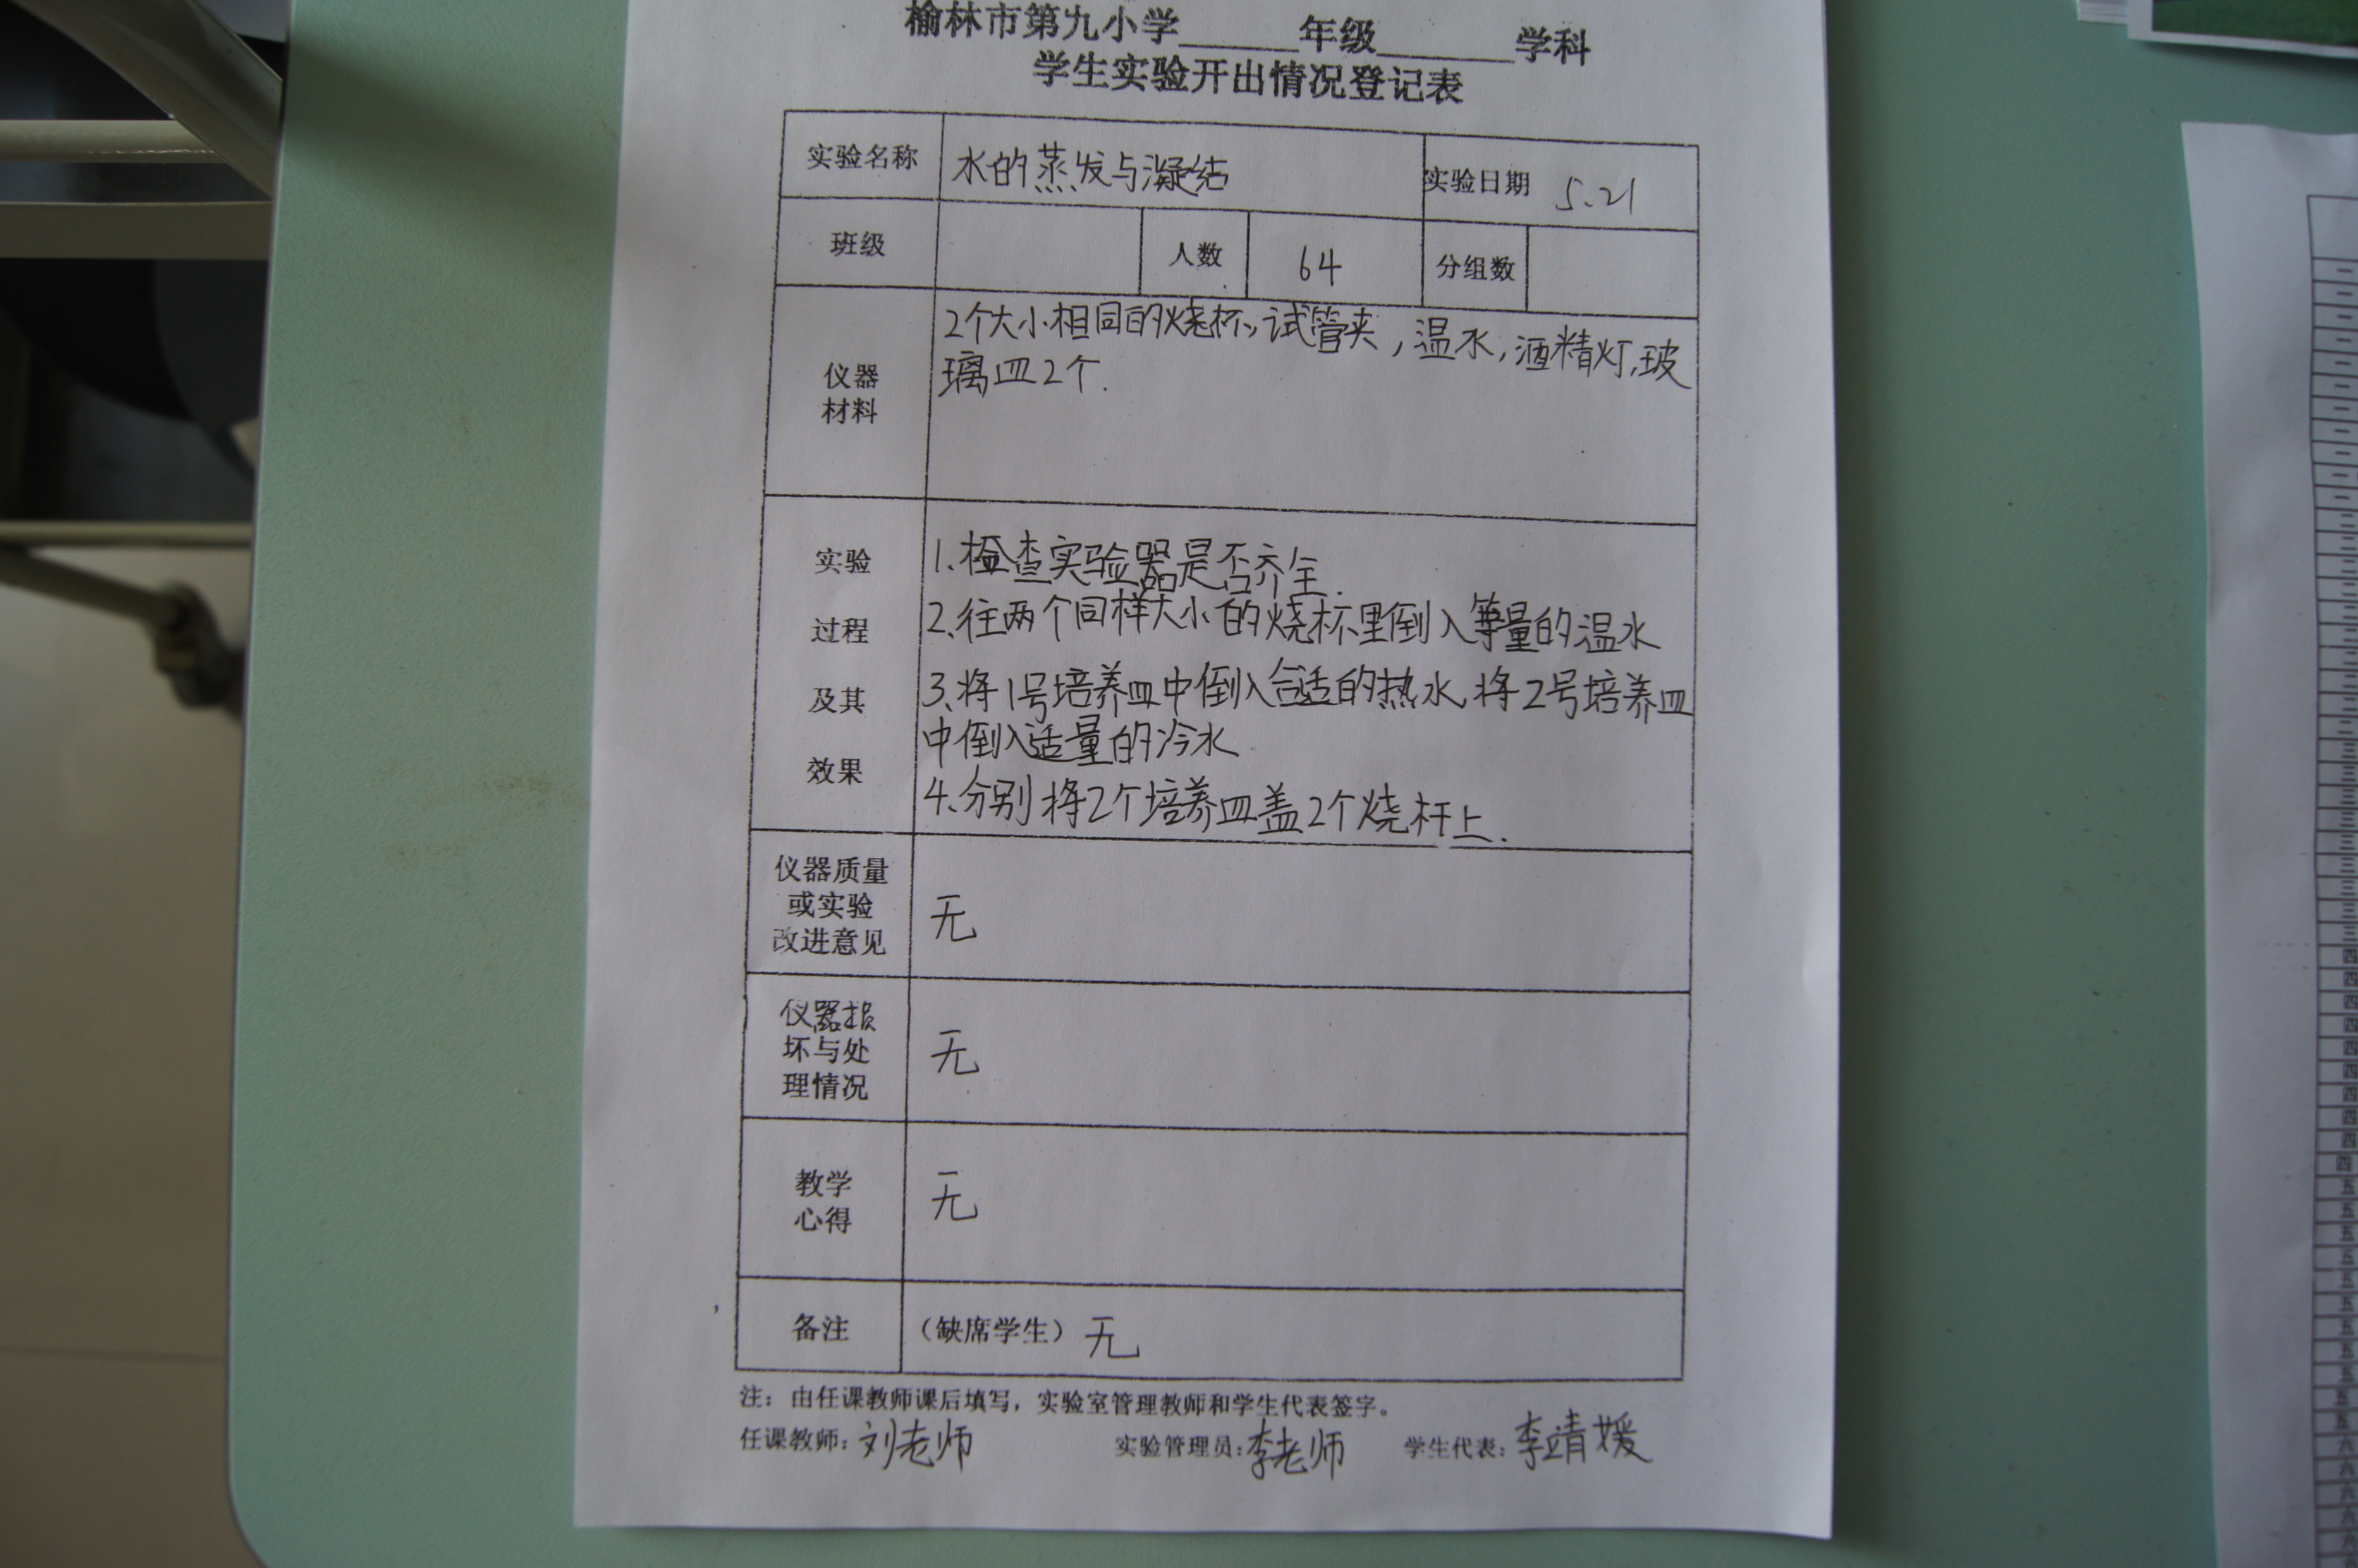 榆林市第九小学______年级_______学科
学生实验开出情况登记表
实验名称 水的蒸发与凝结 实验日期 5.21
班级 人数 64 分组数
仪器
材料
2个大小相同的烧杯,试管夹,温水,酒精灯,玻
璃皿2个.
实验
过程
及其
效果
1.检查实验器是否齐全.
2.往两个同样大小的烧杯里倒入等量的温水
3.将1号培养皿中倒入合适的热水,将2号培养皿
中倒入适量的冷水
4.分别将2个培养皿盖2个烧杆上.
仪器质量
或实验
改进意见
无
仪器损
坏与处
理情况
无
教学
心得
无
备注 (缺席学生) 无
注:由任课教师课后填写,实验室管理教师和学生代表签字。
任课教师:刘老师 实验管理员:李老师 学生代表:李靖媛